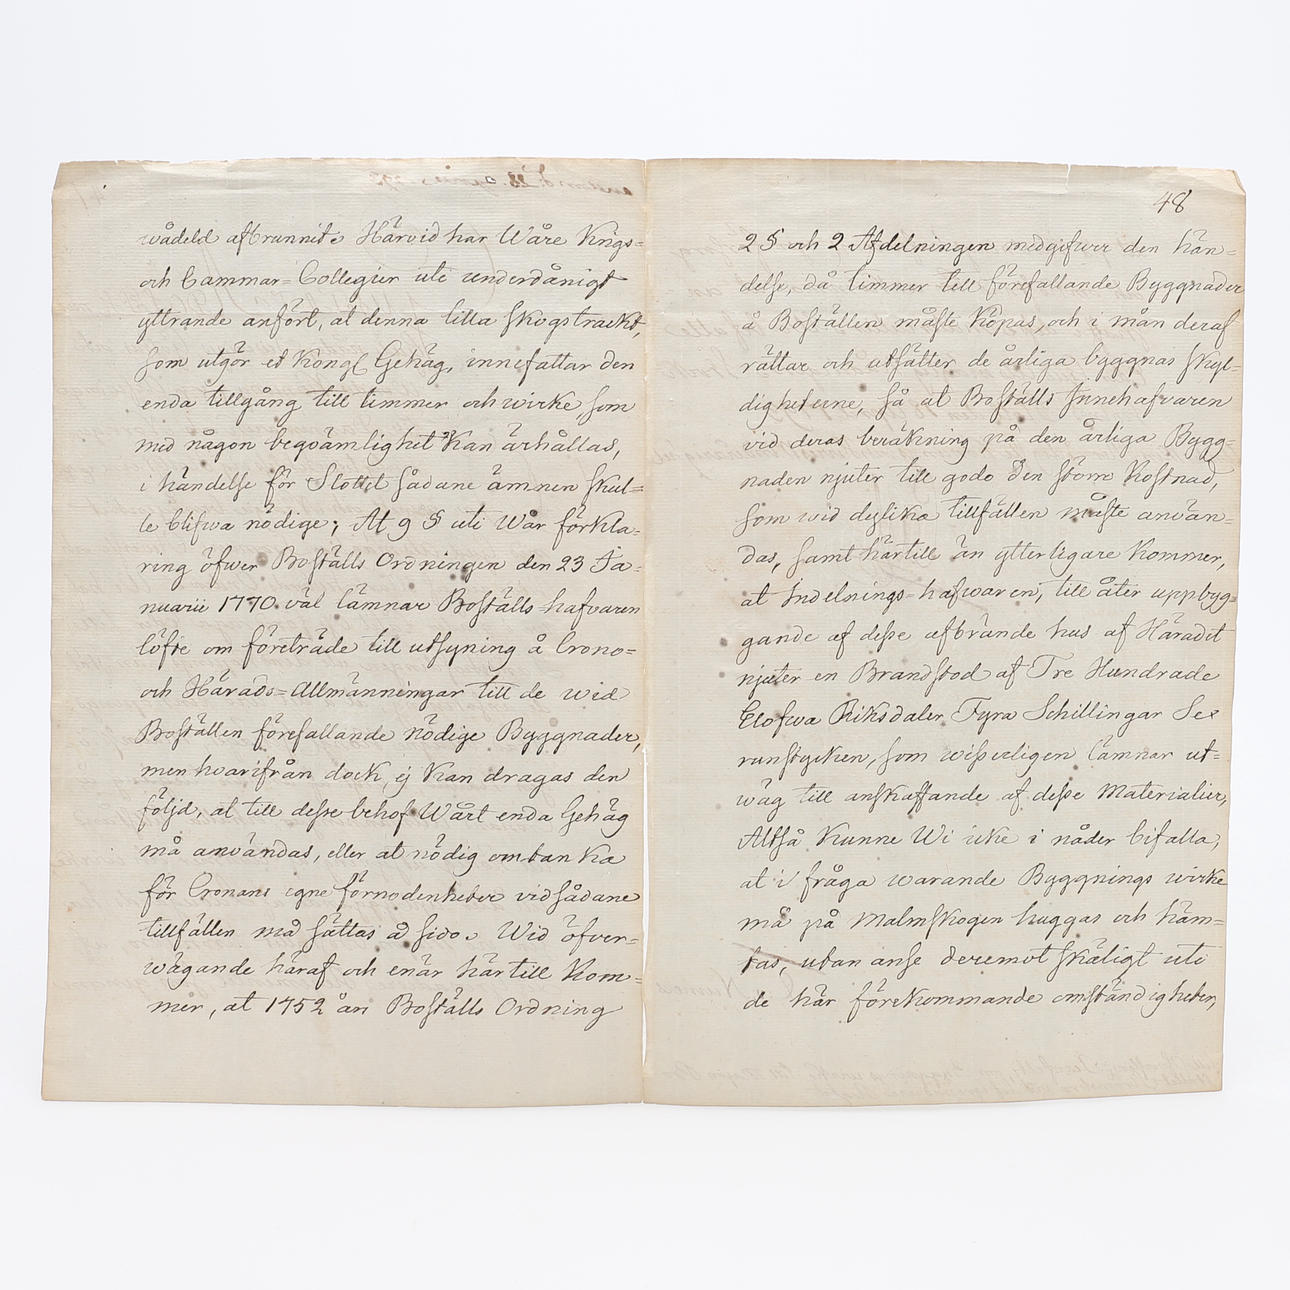 wådeld afbrunnit. Härvid har Wåre Krigs=
och Cammar=Collegier uti underdånigt
yttrande anfört, at denna lilla skogstrackt,
som utgör et Kongl Gehäg, innefattar den
enda tillgång till timmer och wirke, som
med någon beqvämlighet kan ärhållas,
i händelse för Slottet sådane ämnen skul=
le blifwa nödige; At 9 § uti Wår förkla=
ring öfwer Boställs Ordningen den 23 Ja=
nuarii 1770. väl lämnar Boställs=hafvaren
löfte om företräde till utsyning å Crono=
och Härads=Allmänningar till de wid
Boställen förefallande nödige Byggnader,
men hvarifrån dock ej kan dragas den
följd, at till desse behof Wårt enda Gehäg
må användas, eller at nödig omtanka
för Cronans egne förnodenheter vid sådane
tillfällen må sättas å sido. Wid öfver=
wägande häraf och enär härtill kom=
mer, at 1752 års Boställs Ordning
48
2 § och 2 Afdelningen medgifwer den hän=
delse, då timmer till förefallande Byggnader
å Boställen måste köpas, och i mån deraf
rättar och utsätter de årliga byggnas skyl=
digheterne, så at Boställs Innehafvaren
vid deras beräkning på den årliga Bygg=
naden njuter till godo den större kostnad,
som wid dylika tillfällen måste använ=
das, samt härtill än ytterligare kommer,
at Indelnings=hafwaren, till åter uppbyg=
gande af desse afbrände hus af Häradet
njuter en Brandstod af Tre Hundrade
Elofwa Riksdaler Fyra Schillingar Se=
runstycken, som wisserligen lämnar ut=
wäg till anskaffande af desse Materialier,
Altså kunne Wi icke i nåder bifalla,
at i fråga warande Byggnings wirke
må på Malmskogen huggas och häm=
tas, utan anse deremot skäligt uti
de här förekommande omständigheter,